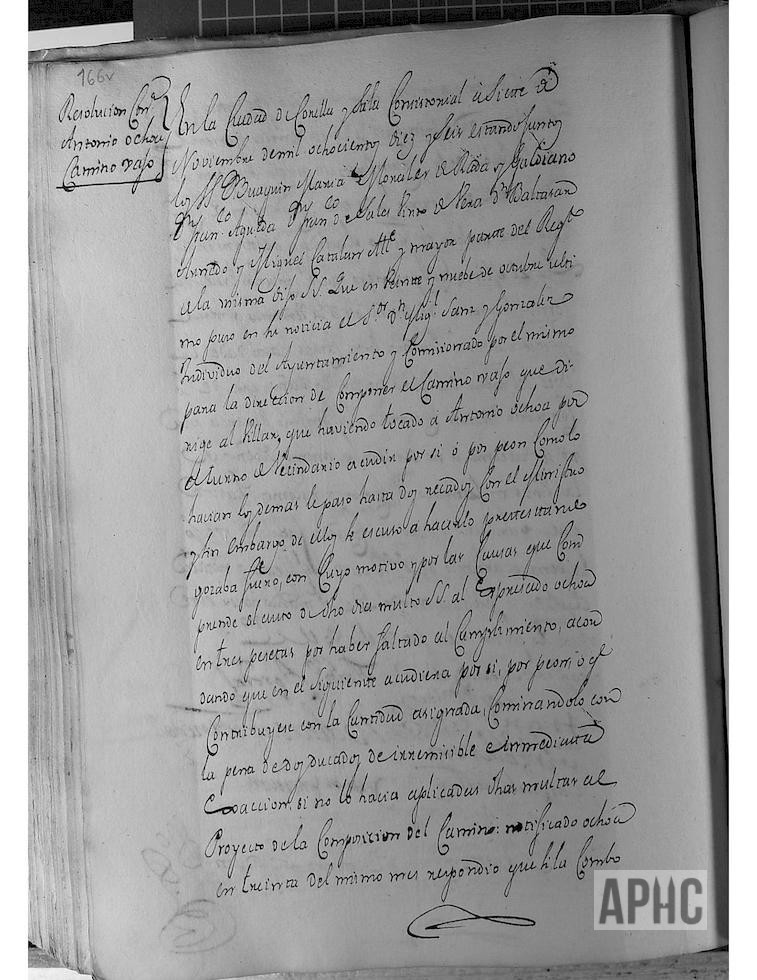 166v
Resolucion Con
Antonio ochoa
Camino vajo
En la Ciudad de Corella y Sala Consistorial á Siete de
Noviembre de mil ochocientos Diez y Seis estando Juntos
los SS. Dn Joaquin Maria Morales de Rada y
Dn Fran.co Agueda Dn Fran.co de Sales Virto de Vera Dn Baltasar
Arnedo y Miguel Catalan Alle y mayor parte del Regto
de la misma Dijo SS. Que en Veinte y nuebe de octubre ulti
mo puso en su noticia el S.or Dn Mig.l Sanz y Gonzalez
Individuo del Ayuntamiento y Comisionado por el mismo
para la direccion de Componer el Camino vajo que di-
rige al Villar, que haviendo tocado á Antonio ochoa por
el turno de Vecindario acudir por si ó por peon Como lo
hacian los demas le paso hasta dos recados Con el Ministro
y sin embargo de ellos se escuso a hacerlo
gozaba fuero, con Cuyo motivo y por las Causas que Com
prende el auto de dho dia multo SS. al Expresado ochoa
en tres pesetas por haber faltado al Cumplimiento, acor
dando que en el Siguiente acudiera por si, por peon, ó q.e
Contribuyese con la Cantidad asignada, Cominandolo con
la pena de dos ducados de irremisible é inmediata
Exaccion, si no lo hacia aplicadas dhas multas al
Proyecto de la Composicion del Camino: notificado ochoa
en treinta del mismo mes respondio que si la Combo
APHC